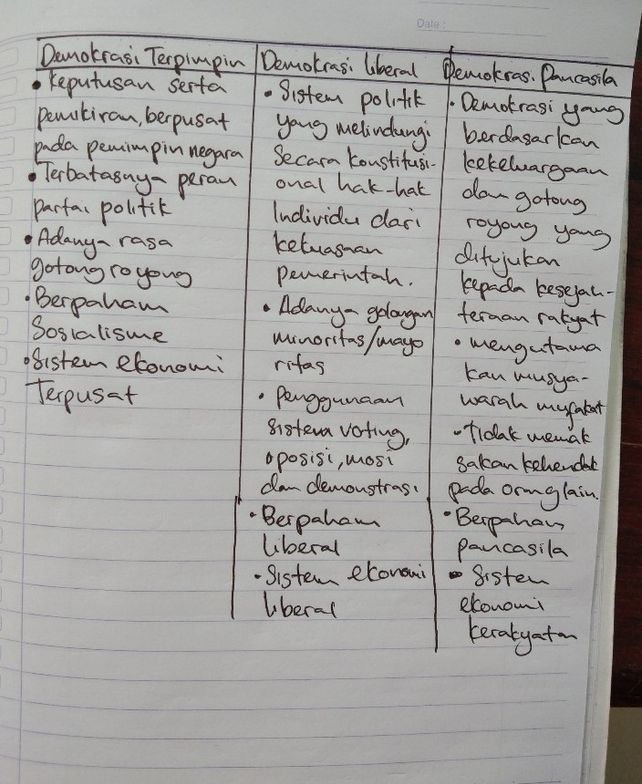 Date :
Demokrasi Terpimpin
• Keputusan serta
pemikiran, berpusat
pada pemimpin negara
• Terbatasnya peran
partai politik
• Adanya rasa
gotong royong
• Berpaham
Sosialisme
• Sistem ekonomi
Terpusat
Demokrasi liberal
• Sistem politik
yang melindungi
Secara konstitusi-
onal hak-hak
Individu dari
kekuasaan
pemerintah.
• Adanya golongan
minoritas/mayo
ritas
• Penggunaan
sistem voting,
oposisi, mosi
dan demonstrasi
• Berpaham
liberal
• Sistem ekonomi
liberal
Demokrasi Pancasila
• Demokrasi yang
berdasarkan
kekeluargaan
dan gotong
royong yang
ditujukan
kepada kesejah-
teraan rakyat
• mengutama
kan musya-
warah mufakat
• Tidak memak
sakan kehendak
pada orang lain.
• Berpaham
pancasila
• Sistem
ekonomi
kerakyatan